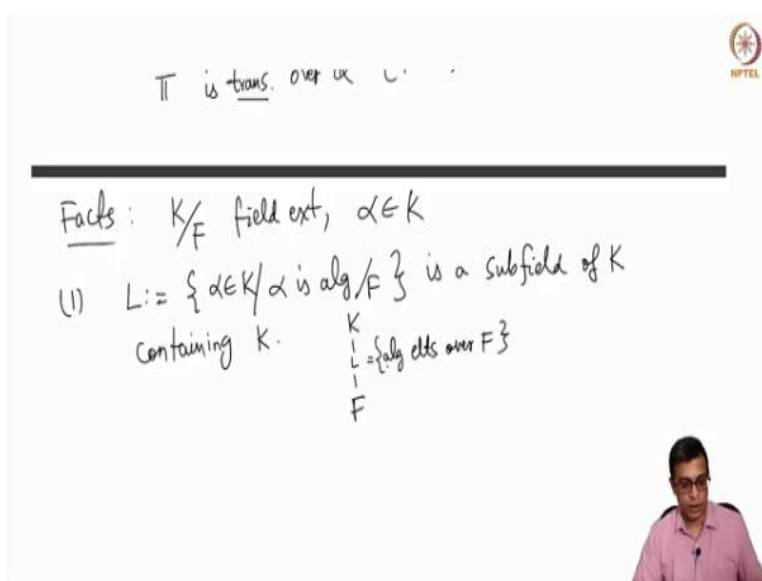 π is trans. over
NPTEL
Facts: K/F field ext, α ∈ K
(1) L := { α ∈ K / α is alg/F } is a subfield of K
containing K.
K
|
L = {alg elts over F}
|
F